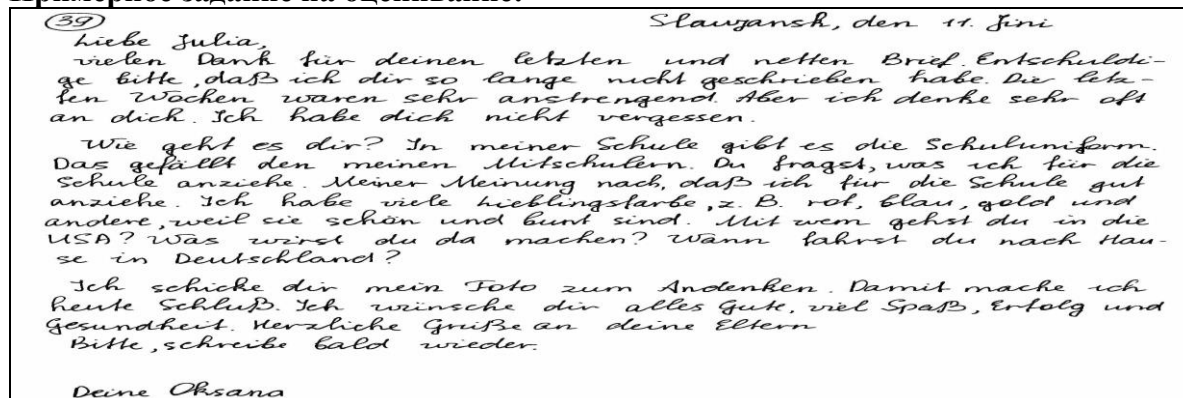 Примерное задание на оценивание:
39 Slawjansk, den 11. Jini
Liebe Julia,
vielen Dank für deinen letzten und netten Brief. Entschuldi-
ge bitte, daß ich dir so lange nicht geschrieben habe. Die letz-
ten Wochen waren sehr anstrengend. Aber ich denke sehr oft
an dich. Ich habe dich nicht vergessen.
Wie geht es dir? In meiner Schule gibt es die Schuluniform.
Das gefällt den meinen Mitschulern. Du fragst, was ich für die
Schule anziehe. Meiner Meinung nach, daß ich für die Schule gut
anziehe. Ich habe viele Lieblingsfarbe, z. B. rot, blau, gold und
andere, weil sie schön und bunt sind. Mit wem gehst du in die
USA? Was wirst du da machen? Wann fahrst du nach Hau-
se in Deutschland?
Ich schicke dir mein Foto zum Andenken. Damit mache ich
heute Schluß. Ich wünsche dir alles Gute, viel Spaß, Erfolg und
Gesundheit. Herzliche Grüße an deine Eltern
Bitte, schreibe bald wieder.
Deine Oksana